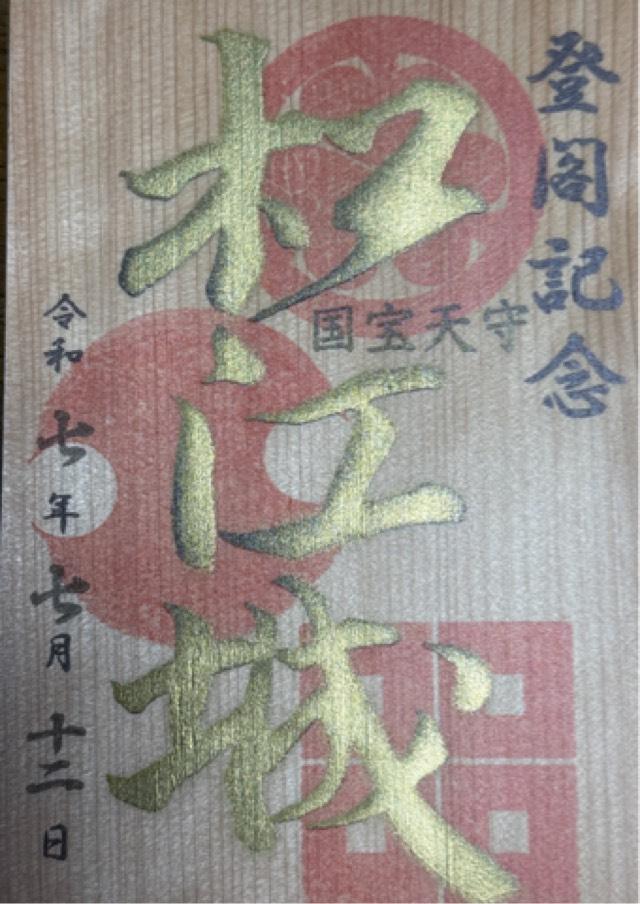 登閣記念
国宝天守
松江城
令和七年七月十二日